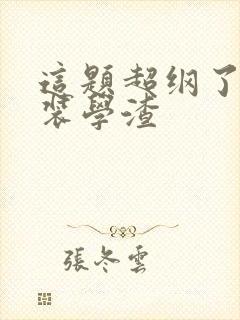 這題超纲了
裝學渣
張冬雲